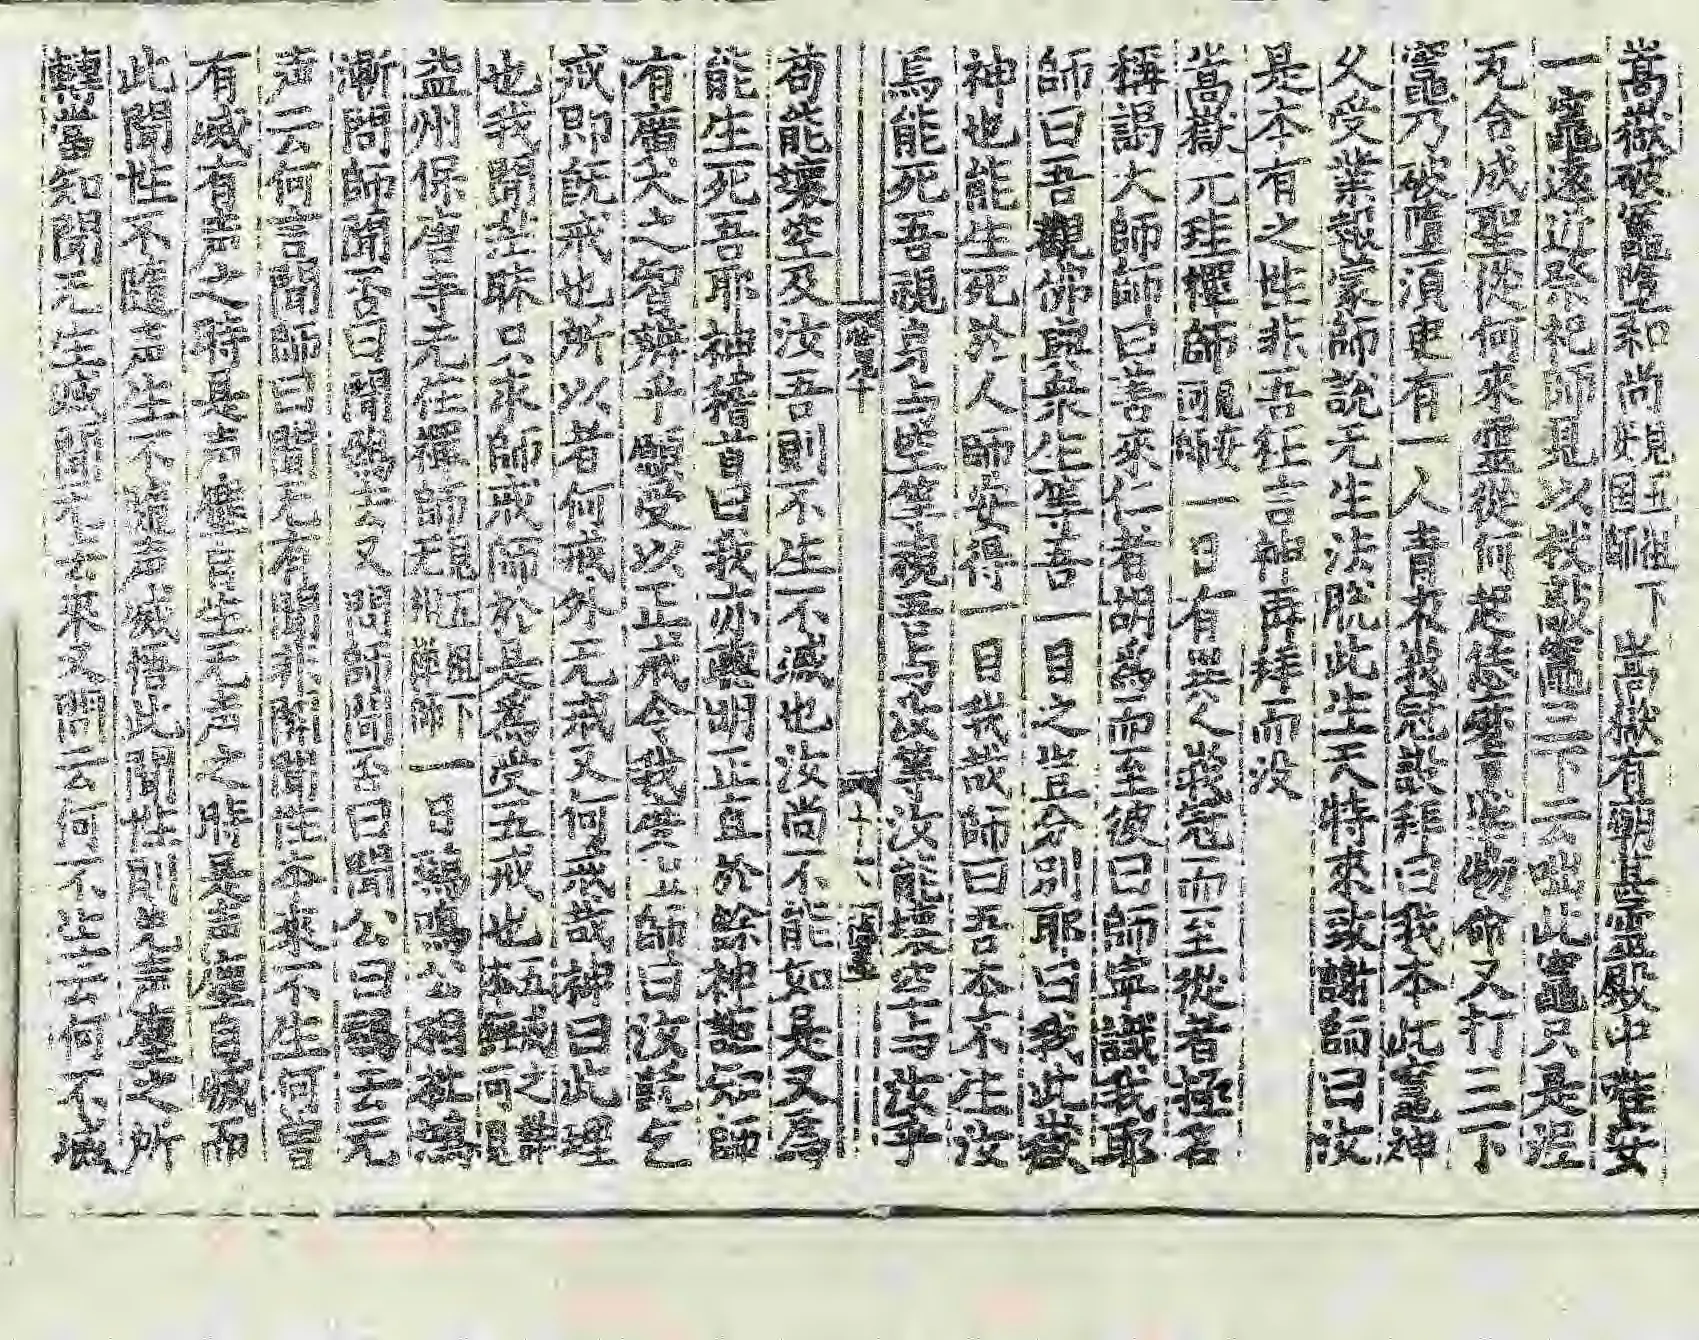 嵩嶽破竈墮和尚見五祖下安國師嵩嶽有廟甚靈殿中唯安
一竈遠近祭祀師見以杖敲竈三下云咄此竈只是泥
瓦合成聖從何來靈從何起恁麽烹宰物命又打三下
竈乃破墮須臾有一人青衣峩冠設拜曰我本此竈神
久受業報蒙師說无生法脫此生天特來致謝師曰汝
是本有之性非吾強言神再拜而没
嵩嶽元珪禪師一日有異人峩冠而至從者極多
稱謁大師師曰善來仁者胡爲而至彼曰師寧識我耶
師曰吾觀佛與衆生等吾一目之豈分別耶曰我此嶽
神也能生死於人師安得一目我哉師曰吾本不生汝
焉能死吾視身与空等視吾与汝等汝能壞空与汝乎
苟能壞空及汝吾則不生不滅也汝尚不能如是又焉
能生死吾耶神稽首曰我亦聰明正直於餘神詎知師
有廣大之智辨乎願受以正戒令我度世師曰汝旣乞
戒即旣戒也所以者何戒外无戒又何戒哉神曰此理
也我聞茫昧只求師戒師於是爲受五戒也
益州保唐寺无住禪師一日鵶鳴公相杜鴻
漸問師聞否曰聞鵶去又問師聞否曰聞公曰鵶去无
声云何言聞師曰聞无有聞非關聞性本來不生何曾
有滅有声之時是声塵自生无声之時是声塵自滅而
此聞性不隨声生不隨声滅悟此聞性則免声塵之所
轉當知聞无生滅聞无去來又問云何不生云何不滅